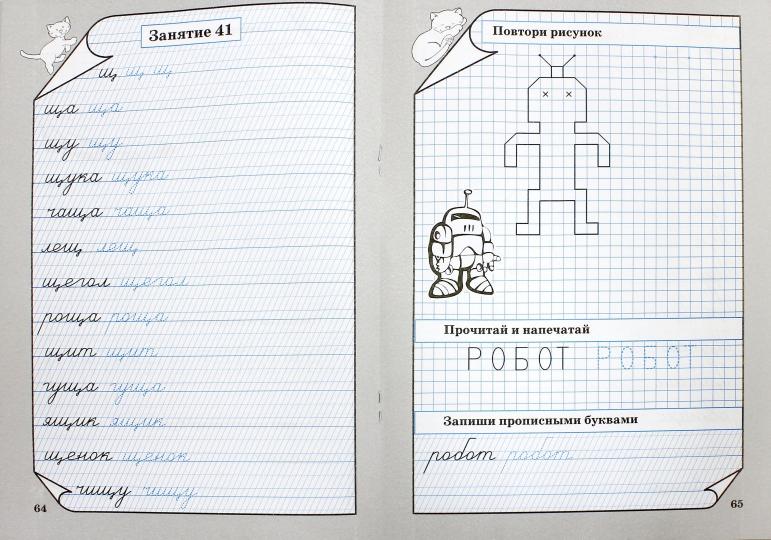 Занятие 41
щ щ щ щ
ща ща
щу щу
щука щука
чаща чаща
лещ лещ
щегол щегол
роща роща
щит щит
гуща гуща
ящик ящик
щенок щенок
чищу чищу
64
Повтори рисунок
Прочитай и напечатай
РОБОТ РОБОТ
Запиши прописными буквами
робот робот
65